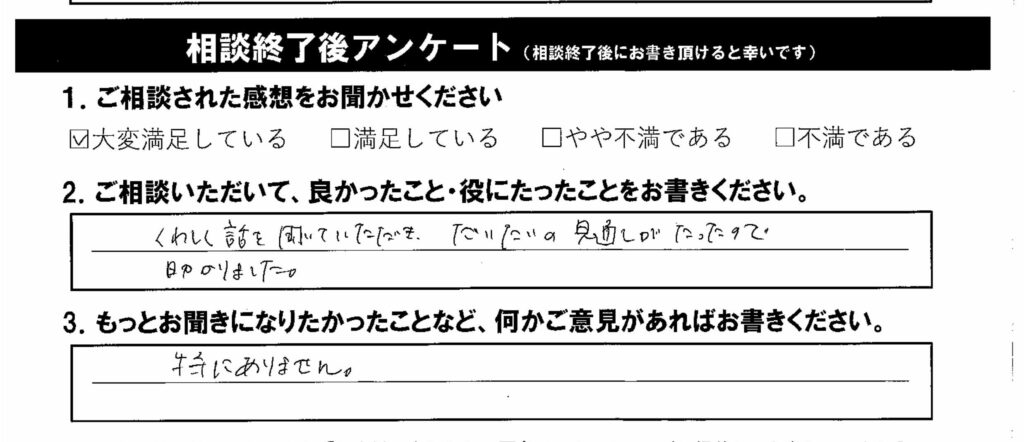 相談終了後アンケート（相談終了後にお書き頂けると幸いです）
1. ご相談された感想をお聞かせください
☑大変満足している □満足している □やや不満である □不満である
2. ご相談いただいて、良かったこと・役にたったことをお書きください。
くわしく話を聞いていただき、だいたいの見通しがたったので
助かりました。
3. もっとお聞きになりたかったことなど、何かご意見があればお書きください。
特にありません。